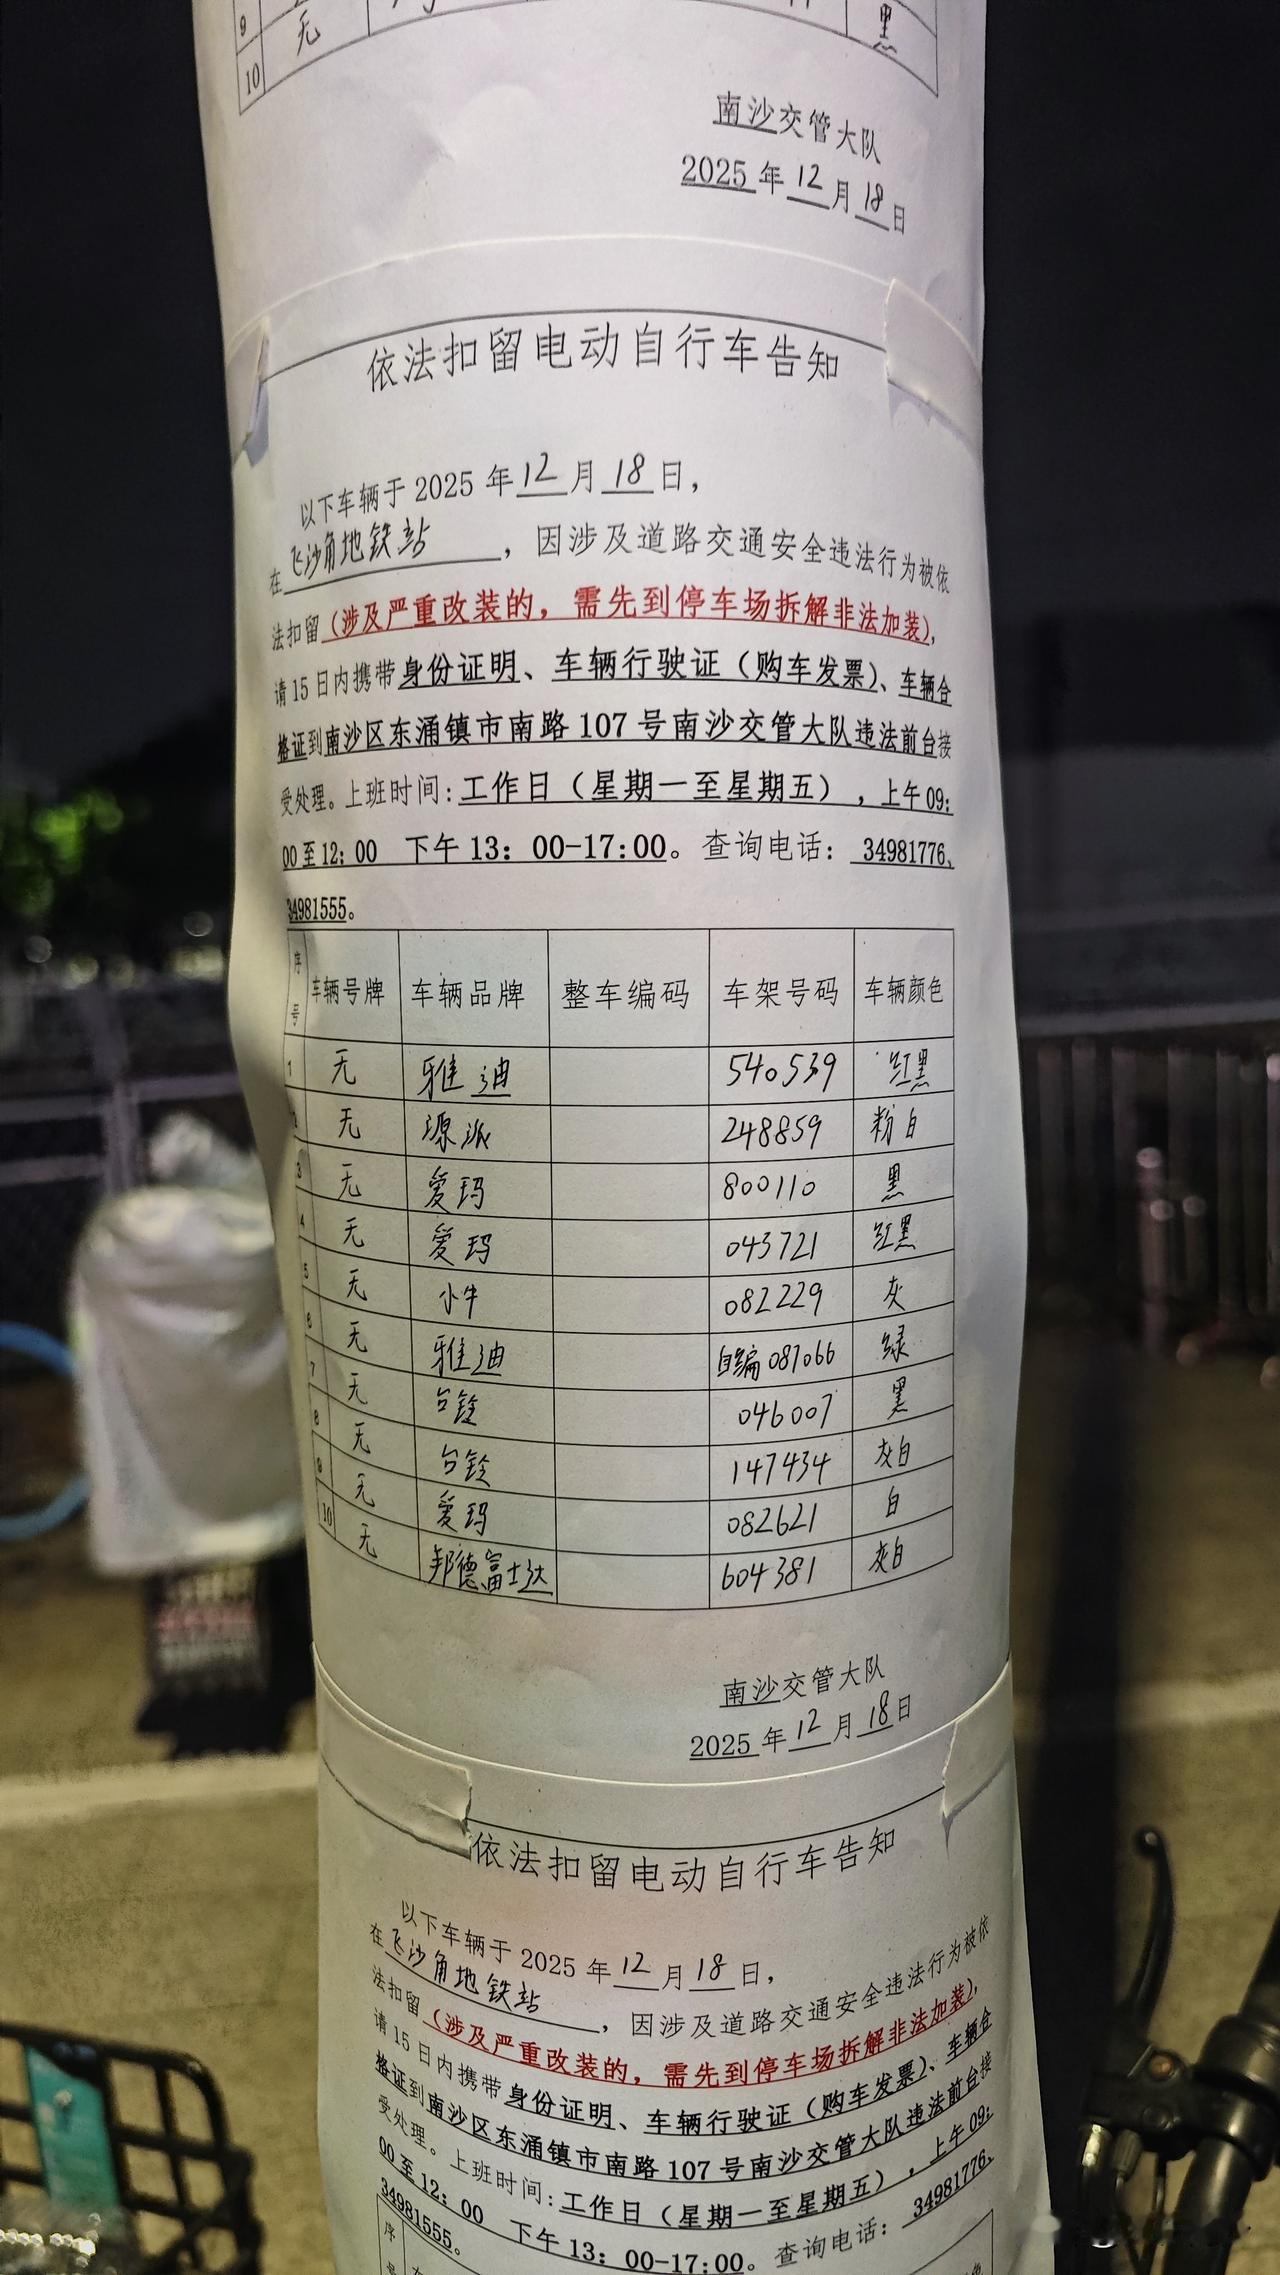 9 无 黑
10
南沙交管大队
2025年12月18日
依法扣留电动自行车告知
以下车辆于2025年12月18日，
在飞沙角地铁站，因涉及道路交通安全违法行为被依
法扣留（涉及严重改装的，需先到停车场拆解非法加装），
请15日内携带身份证明、车辆行驶证（购车发票）、车辆合
格证到南沙区东涌镇市南路107号南沙交管大队违法前台接
受处理。上班时间：工作日（星期一至星期五），上午09：
00至12：00 下午13：00-17:00。查询电话：34981776、
34981555。
序号 车辆号牌 车辆品牌 整车编码 车架号码 车辆颜色
1 无 雅迪 540539 红黑
2 无 源派 248859 粉白
3 无 爱玛 800110 黑
4 无 爱玛 043721 红黑
5 无 小牛 082229 灰
6 无 雅迪 自编081066 绿
7 无 台铃 046007 黑
8 无 台铃 147434 灰白
9 无 爱玛 082621 白
10 无 邦德富士达 604381 灰白
南沙交管大队
2025年12月18日
依法扣留电动自行车告知
以下车辆于2025年12月18日，
在飞沙角地铁站，因涉及道路交通安全违法行为被依
法扣留（涉及严重改装的，需先到停车场拆解非法加装），
请15日内携带身份证明、车辆行驶证（购车发票）、车辆合
格证到南沙区东涌镇市南路107号南沙交管大队违法前台接
受处理。上班时间：工作日（星期一至星期五），上午09：
00至12：00 下午13：00-17:00。查询电话：34981776、
34981555。
序号